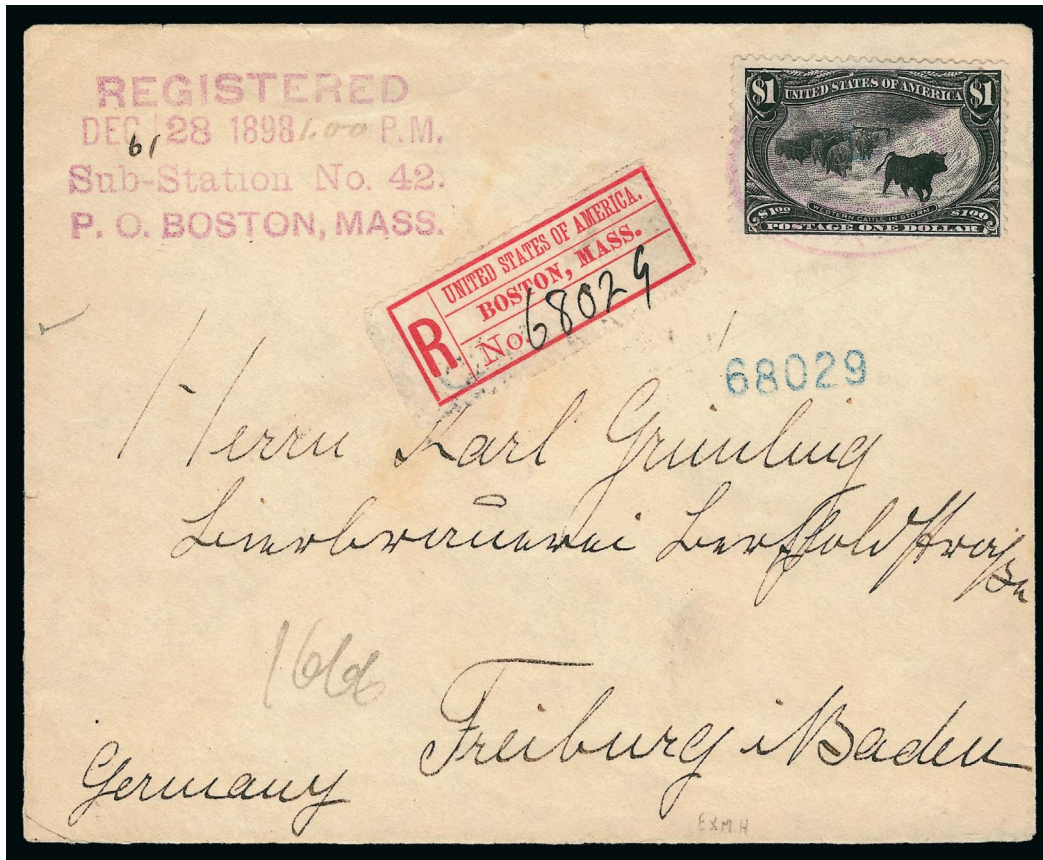 REGISTERED
DEC 28 1898 1.00 P.M.
61
Sub-Station No. 42.
P. O. BOSTON, MASS.
$1 UNITED STATES OF AMERICA $1
WESTERN CATTLE IN STORM
$1.00 $1.00
POSTAGE ONE DOLLAR
UNITED STATES OF AMERICA.
BOSTON, MASS.
R No. 68029
68029
Herrn Karl Grümling
Bierbrauerei Berthold straße
166
Freiburg i Baden
Germany
EXMH